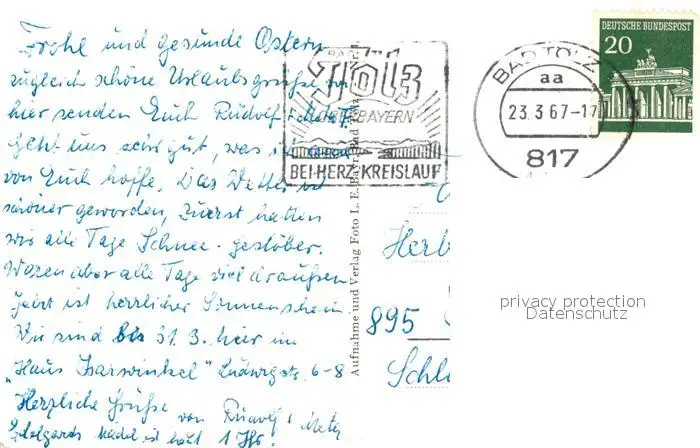 Frohe und gesunde Ostern
zugleich schöne Urlaubsgrüße von
hier senden Euch Rudolf
Geht uns sehr gut, was ich
von Euch hoffe. Das Wetter ist
schöner geworden, zuerst hatten
wir alle Tage Schnee-gestöber.
Waren aber alle Tage viel draußen
Jetzt ist herrlicher Sonnenschein.
Wir sind bis 31.3. hier im
"Haus Isarwinkel" Ludwigstr. 6-8
Herzliche Grüße von Rudolf
Mädel ist 1
BAD
Tölz
OBERBAYERN
BEI HERZ-KREISLAUF
BAD TÖLZ
aa
23.3.67-17
817
DEUTSCHE BUNDESPOST
20
Aufnahme und Verlag Foto L. E. Bayr, Bad
Herb
895
Schl
privacy protection
Datenschutz